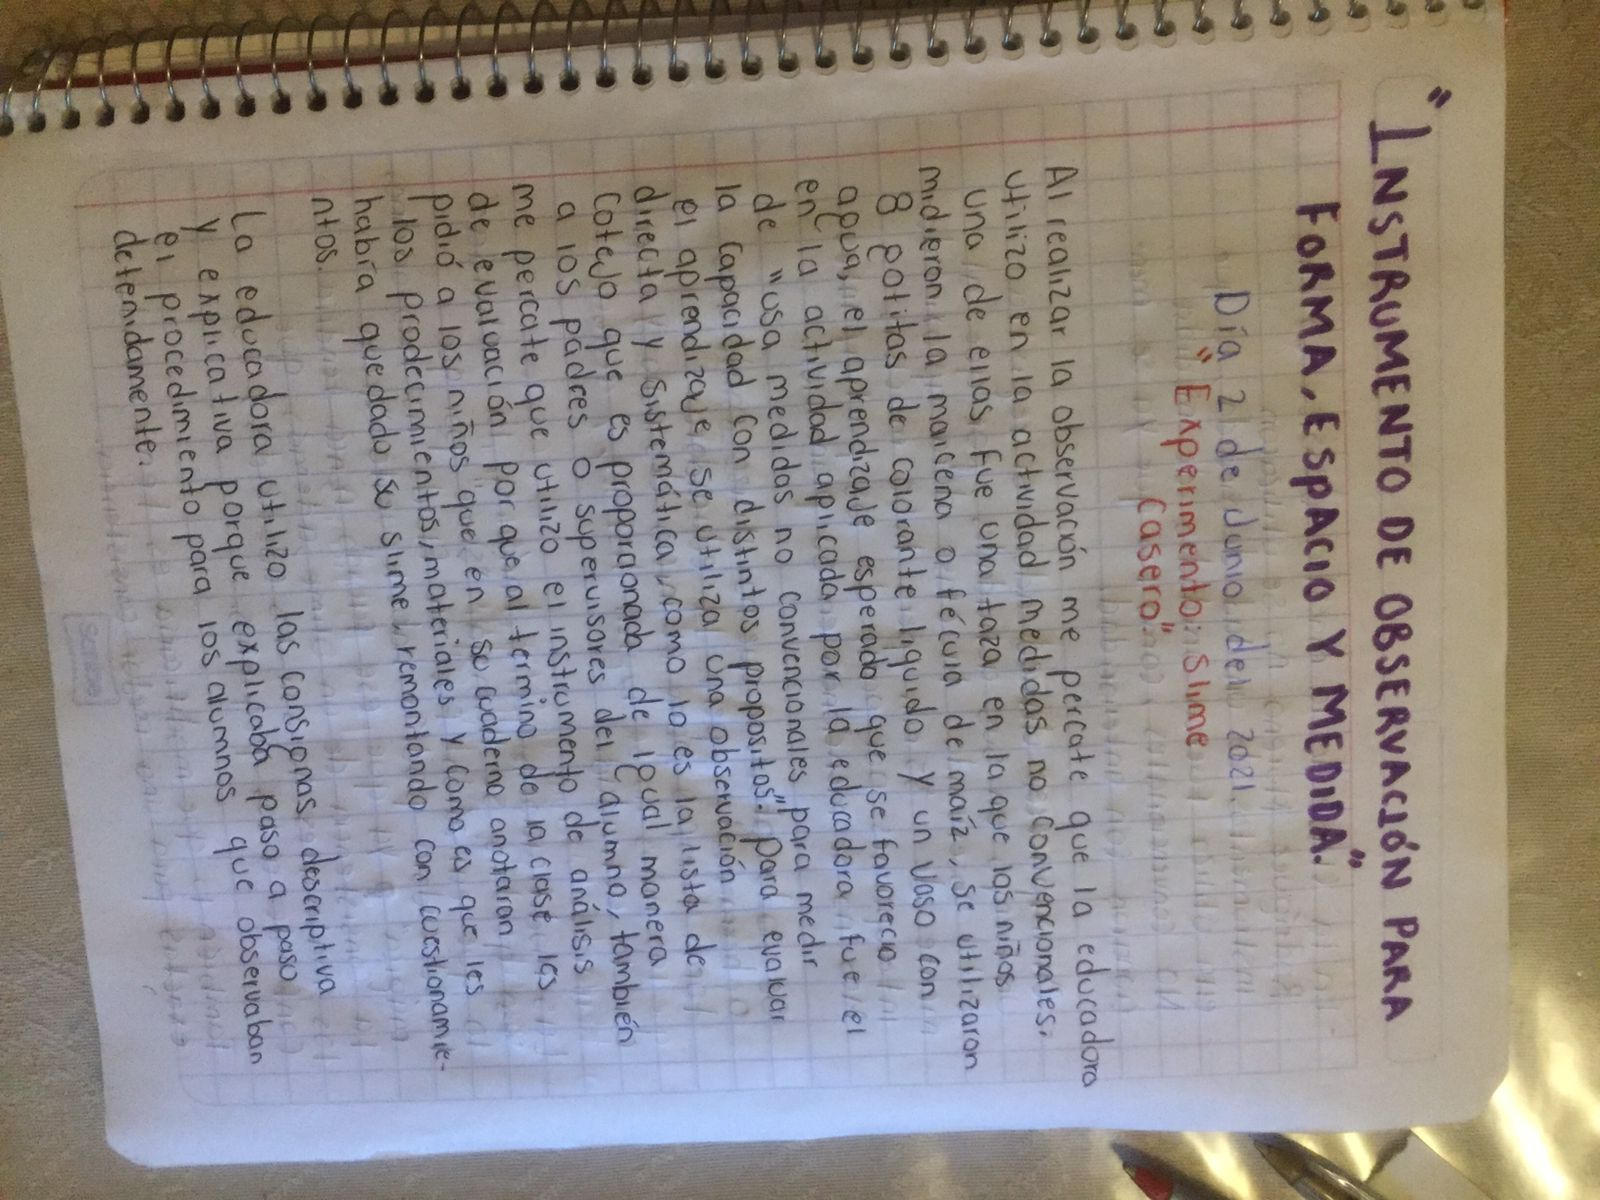 "INSTRUMENTO DE OBSERVACIÓN PARA
FORMA, ESPACIO Y MEDIDA."
Día 2 de Junio del 2021.
"Experimento: Slime
Casero."
Al realizar la observación me percate que la educadora
utilizo en la actividad medidas no convencionales,
una de ellas fue una taza en la que los niños
midieron la maicena o fécula de maíz, se utilizaron
8 gotitas de colorante liquido y un vaso con
agua, el aprendizaje esperado que se favorecio
en la actividad aplicada por la educadora fue el
de "usa medidas no convencionales para medir
la capacidad con distintos propositos". para evaluar
el aprendizaje se utiliza una observación
directa y sistemática, como lo es la lista de
Cotejo que es proporaonada de igual manera
a los padres o supervisores del alumno, también
me percate que utilizo el instrumento de análisis
de evaluación por que al termino de la clase les
pidió a los niños que en su cuaderno anotaran
los prodecimientos, materiales y como es que les
habría quedado su slime, remontando con cuestionamie-
ntos.
La educadora utilizo las consignas descriptiva
y explicativa porque explicaba paso a paso
el procedimiento para los alumnos que observaban
detenidamente.